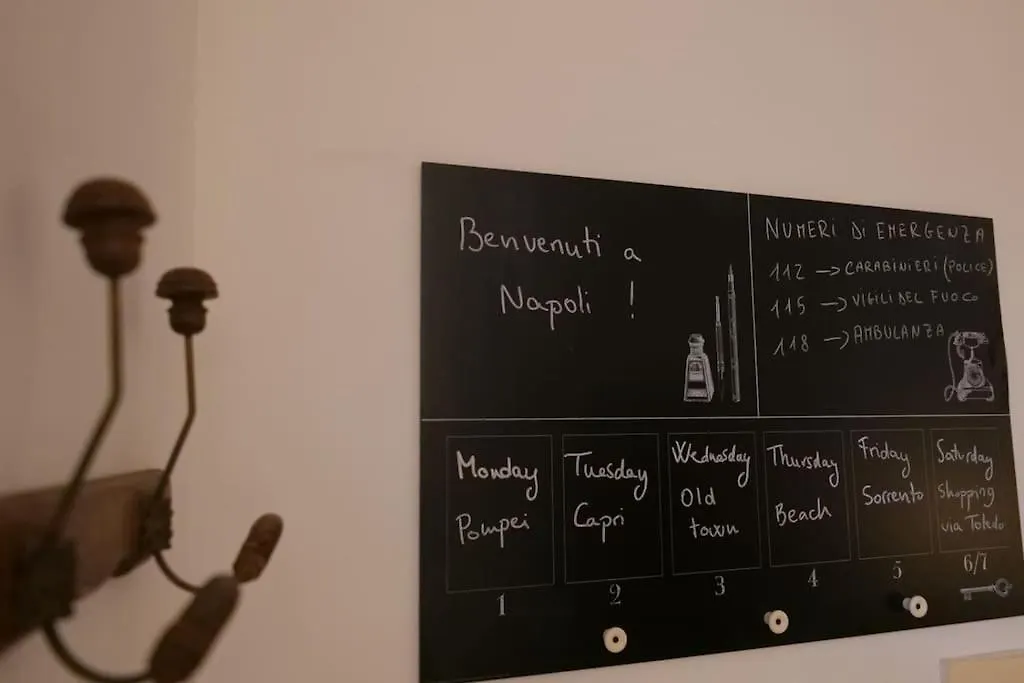 Benvenuti a
Napoli !
NUMERI DI EMERGENZA
112 → CARABINIERI (POLICE)
115 → VIGILI DEL FUOCO
118 → AMBULANZA
Monday
Pompei
1
Tuesday
Capri
2
Wednesday
Old
town
3
Thursday
Beach
4
Friday
Sorrento
5
Saturday
Shopping
via Toledo
6/7